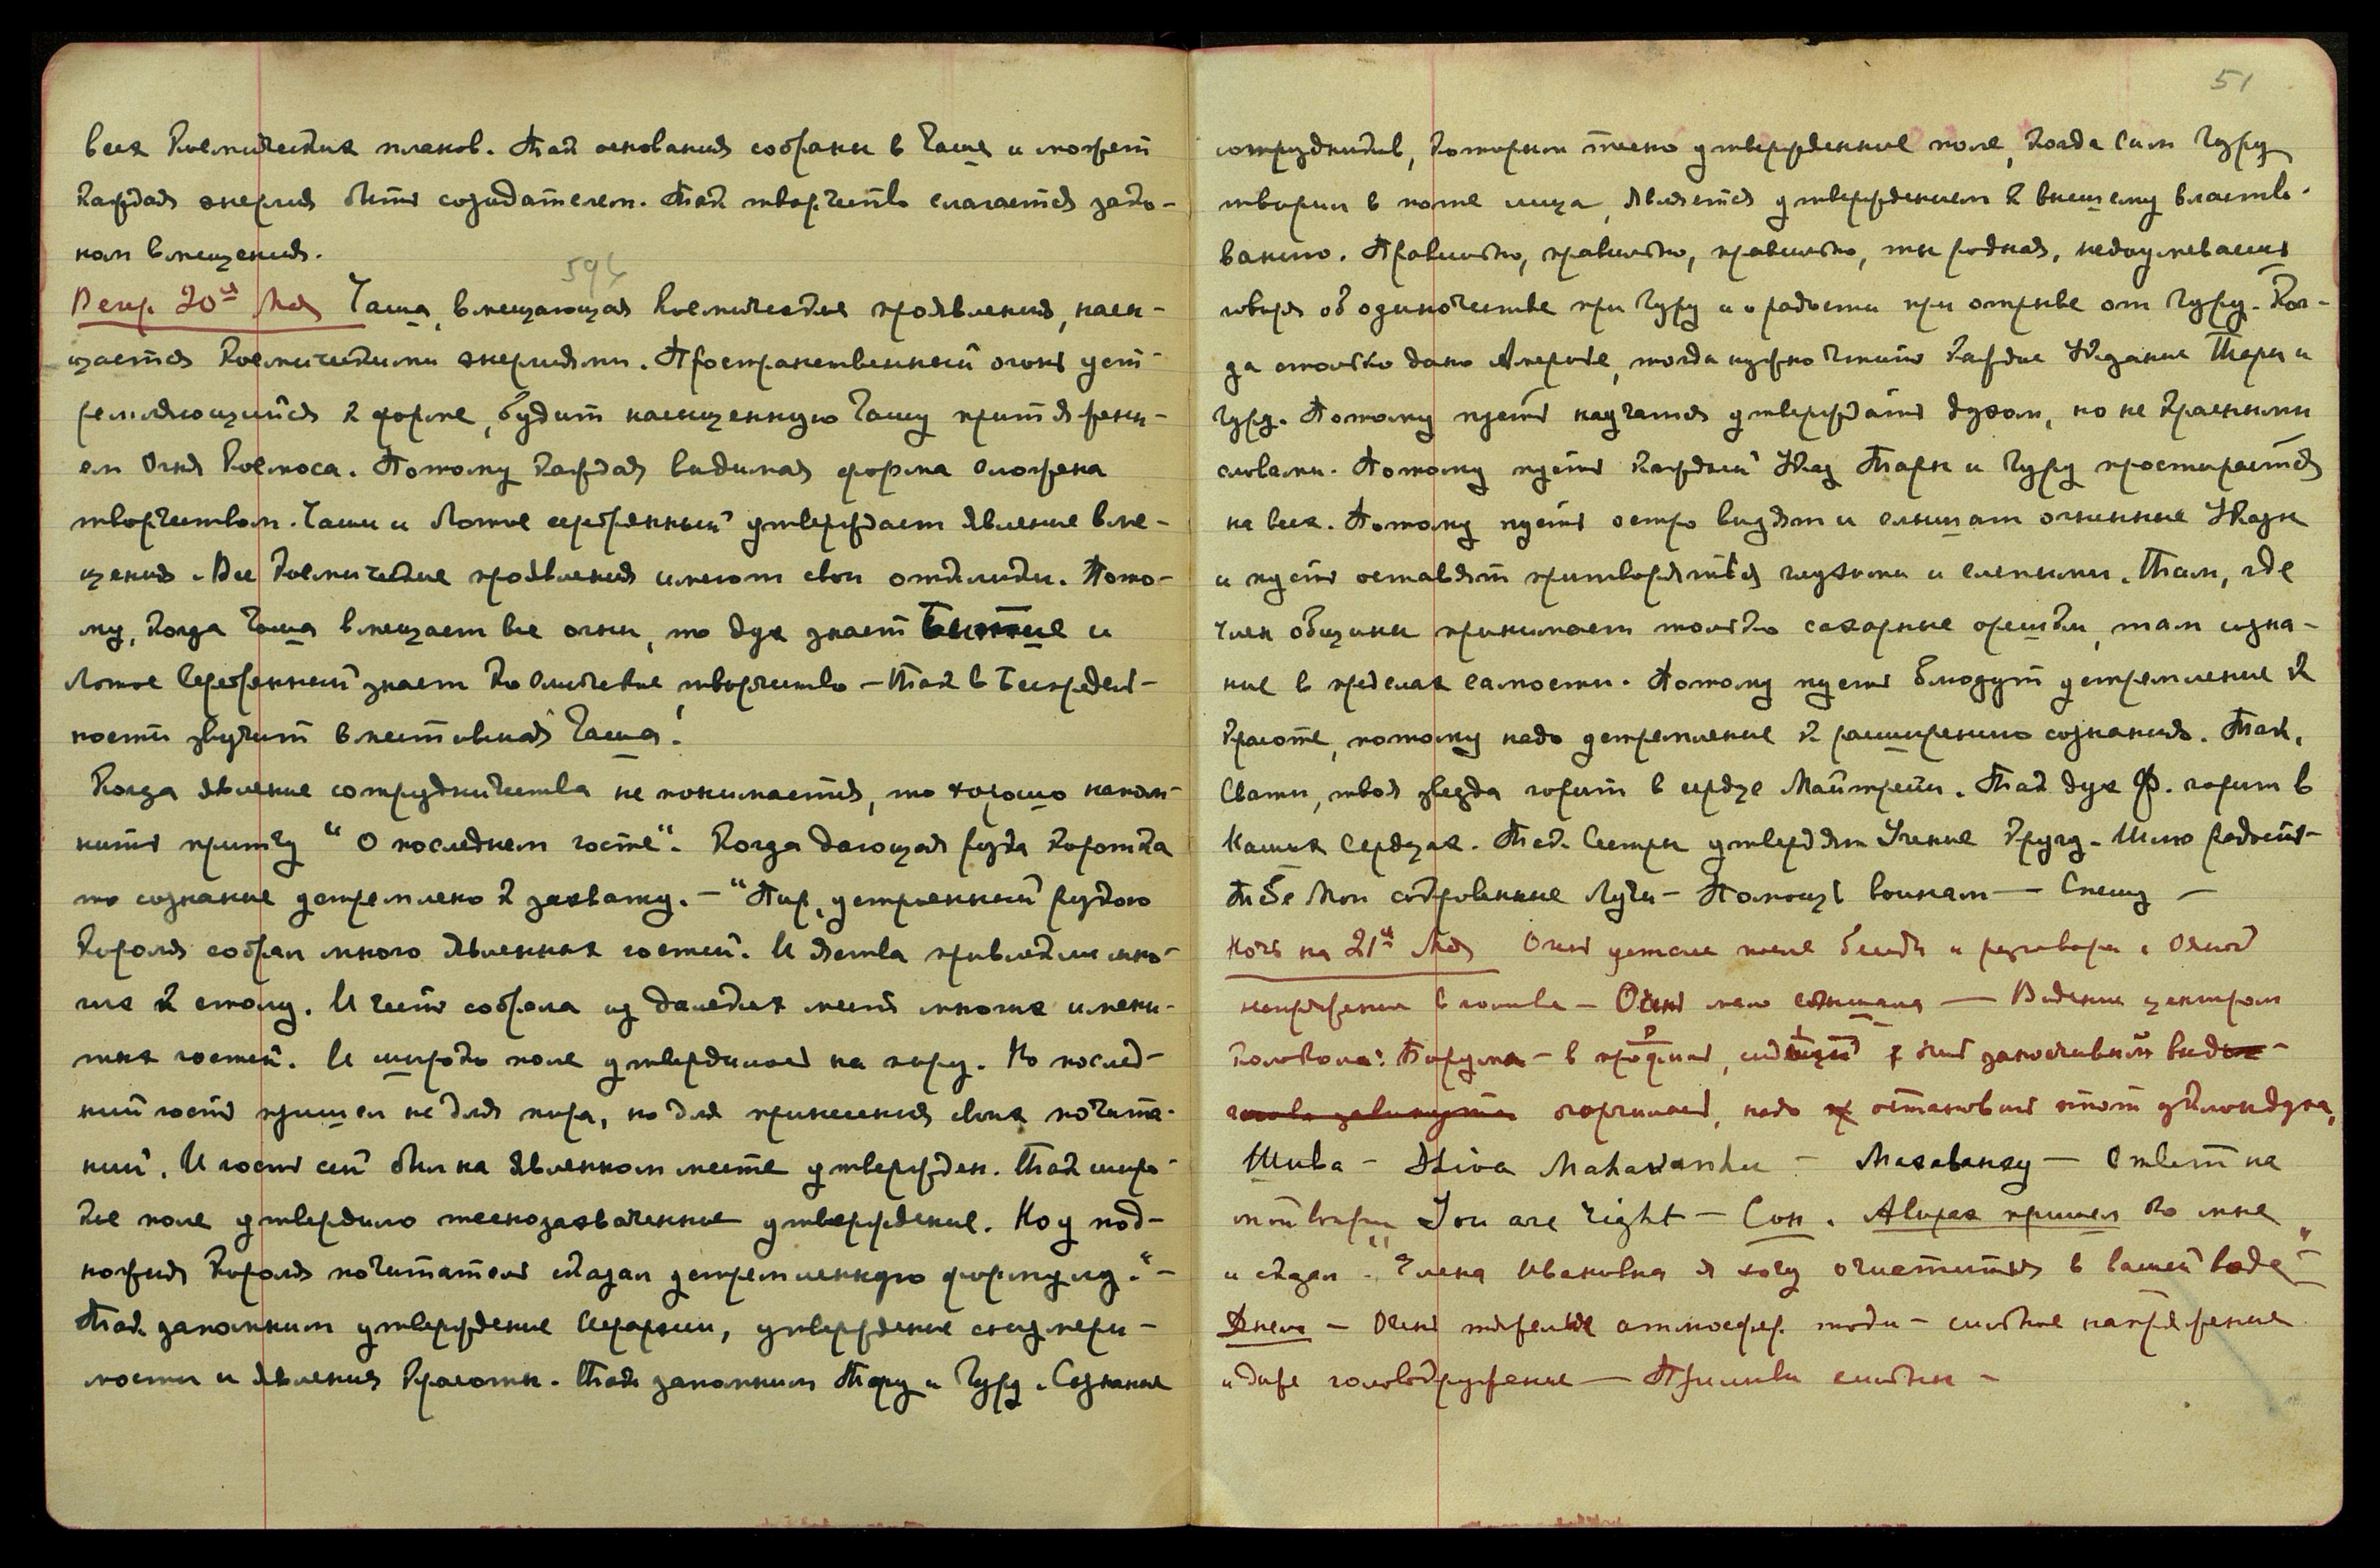 всех космических планов. Так основания собраны в Чаше и может
каждая энергия быть созидателем. Так творчество слагается зако-
ном вмещения.
594
Вечер. 20й Май Чаша, вмещающая космические проявления, насы-
щается космическими энергиями. Пространственный огонь уст-
ремляющийся к форме, будит насыщенную Чашу притяжени-
ем Огня Космоса. Потому каждая видимая форма сложена
творчеством. Чаши и Лотос серебрянный утверждает явление вме-
щения. Все космические проявления имеют свои отклики. Пото-
му, когда Чаша вмещает все огни, то дух знает Бытие и
Лотос Серебрянный знает Космическое творчество – Так в Беспредель-
ности звучит вместившая Чаша!
Когда явление сотрудничества не понимается, то хорошо напом-
нить притчу "О последнем госте". Когда дающая рука коротка
то сознание устремлено к захвату. – "Пир, устроенный рукою
Короля собрал много явленных гостей. И яства привлекли мно-
гих к столу. И честь собрала из далеких мест многих имени-
тых гостей. И широко поле утвердилось на пиру. Но послед-
ний гость пришел не для пира, но для принесения своих почита-
ний. И гость сей был на явленном месте утвержден. Так широ-
кое поле утвердило теснозахваченные утверждение. Но у под-
ножия Короля почитатель сказал устремленную формулу." –
Так запомним утверждение Иерархии, утверждение соизмери-
мости и явления Красоты. Так запомним Тару и Гуру. Сознание
51
сотрудников, которым тесно утвержденное поле, когда Сам Гуру
творил в поте лица, является утверждением к высшему властво-
ванию. Правильно, правильно, правильно, ты родная, недоумеваешь
говоря об одиночестве при Гуру и о радости при отрыве от Гуру. Ког-
да столько дано Америке, тогда нужно чтить каждое Указание Тары и
Гуру. Потому пусть научатся утверждать духом, но не красными
словами. Потому пусть каждый Указ Тары и Гуру простирается
на всех. Потому пусть остро видят и слышат огненные Указы
и пусть оставят притворяться глухими и слепыми. Там, где
член общины принимает только сахарные орешки, там созна-
ние в пределах самости. Потому пусть блюдут устремление к
Красоте, потому надо устремление к расширению сознания. Так,
Свати, твоя звезда горит в сердце Майтрейи. Так дух Ф. горит в
Наших Сердцах. Так Сестры утвердят Учение Кругу. Шлю радость –
Тебе Мои сокровенные Лучи – Помощь воинам – Спешу –
Ночь на 21й Май Очень устала после беседы и разговора с Ояной
напряжение в голове – Очень мало слышала – Видение центром
колокола: – в профиль,
огорчилась, надо остановить этот уклон духа,
Шива – Shiva Mahavanhu – Махаванху – Ответ на
мой вопрос You are right – Сон. Авирах пришел ко мне
и сказал – "Елена Ивановна я хочу очиститься в вашей воде" –
Днем – Очень тяжелые атмосфер. токи – сильное напряжение
и даже головокружение – Приливы сильны –